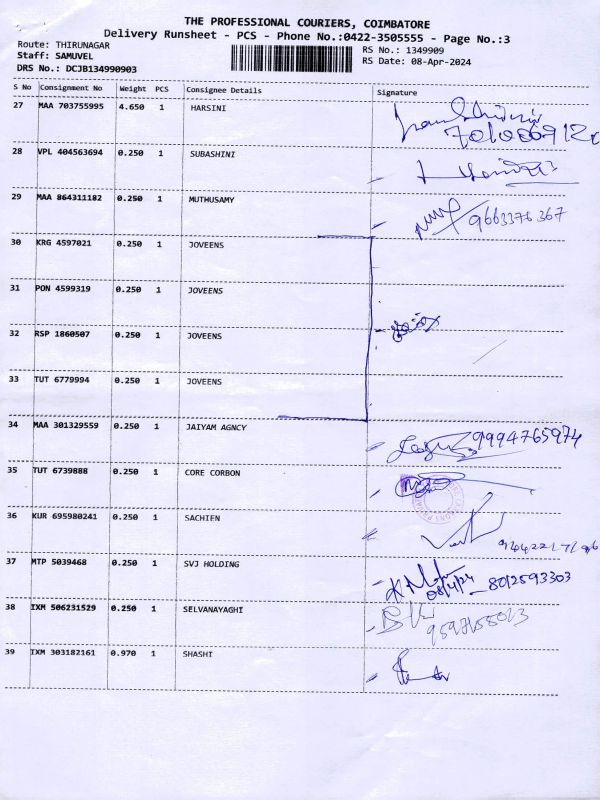 THE PROFESSIONAL COURIERS, COIMBATORE
Delivery Runsheet - PCS - Phone No.:0422-3505555 - Page No.:3
Route: THIRUNAGAR
Staff: SAMUVEL
DRS No.: DCJB134990903
RS No.: 1349909
RS Date: 08-Apr-2024
S No Consignment No Weight PCS Consignee Details Signature
27 MAA 703755995 4.650 1 HARSINI
28 VPL 404563694 0.250 1 SUBASHINI
29 MAA 864311182 0.250 1 MUTHUSAMY
9663376367
30 KRG 4597021 0.250 1 JOVEENS
31 PON 4599319 0.250 1 JOVEENS
32 RSP 1860507 0.250 1 JOVEENS
33 TUT 6779994 0.250 1 JOVEENS
34 MAA 301329559 0.250 1 JAIYAM AGNCY
9994765974
35 TUT 6739888 0.250 1 CORE CORBON
36 KUR 695980241 0.250 1 SACHIEN
37 MTP 5039468 0.250 1 SVJ HOLDING
08/4/24 8012593303
38 IXM 506231529 0.250 1 SELVANAYAGHI
39 IXM 303182161 0.970 1 SHASHI